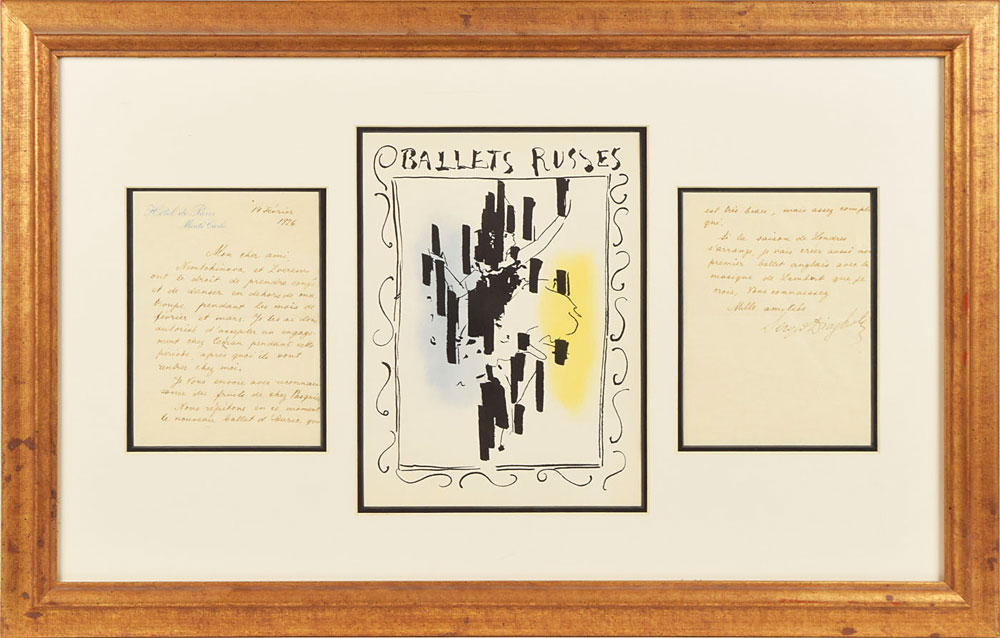 Hôtel de Paris
Monte Carlo
14 Février
1926
Mon cher ami
et
ont le droit de prendre congé
et de danser en dehors de ma
troupe pendant les mois de
février et mars. Je les ai don
autorisé d'accepter un engage-
ment chez pendant cette
période, après quoi ils vont
rentrer chez moi.
Je vous envoie avec
des fruits de chez
Nous répétons en ce moment
le nouveau ballet d'Auric, qui
BALLETS RUSSES
est très beau, mais assez compli
qué.
Si la saison de Londres
s'arrange, je vais créer aussi
premier ballet anglais avec
musique de Lambert que je
crois, vous connaissez
Mille amitiés
Serge Diaghilev